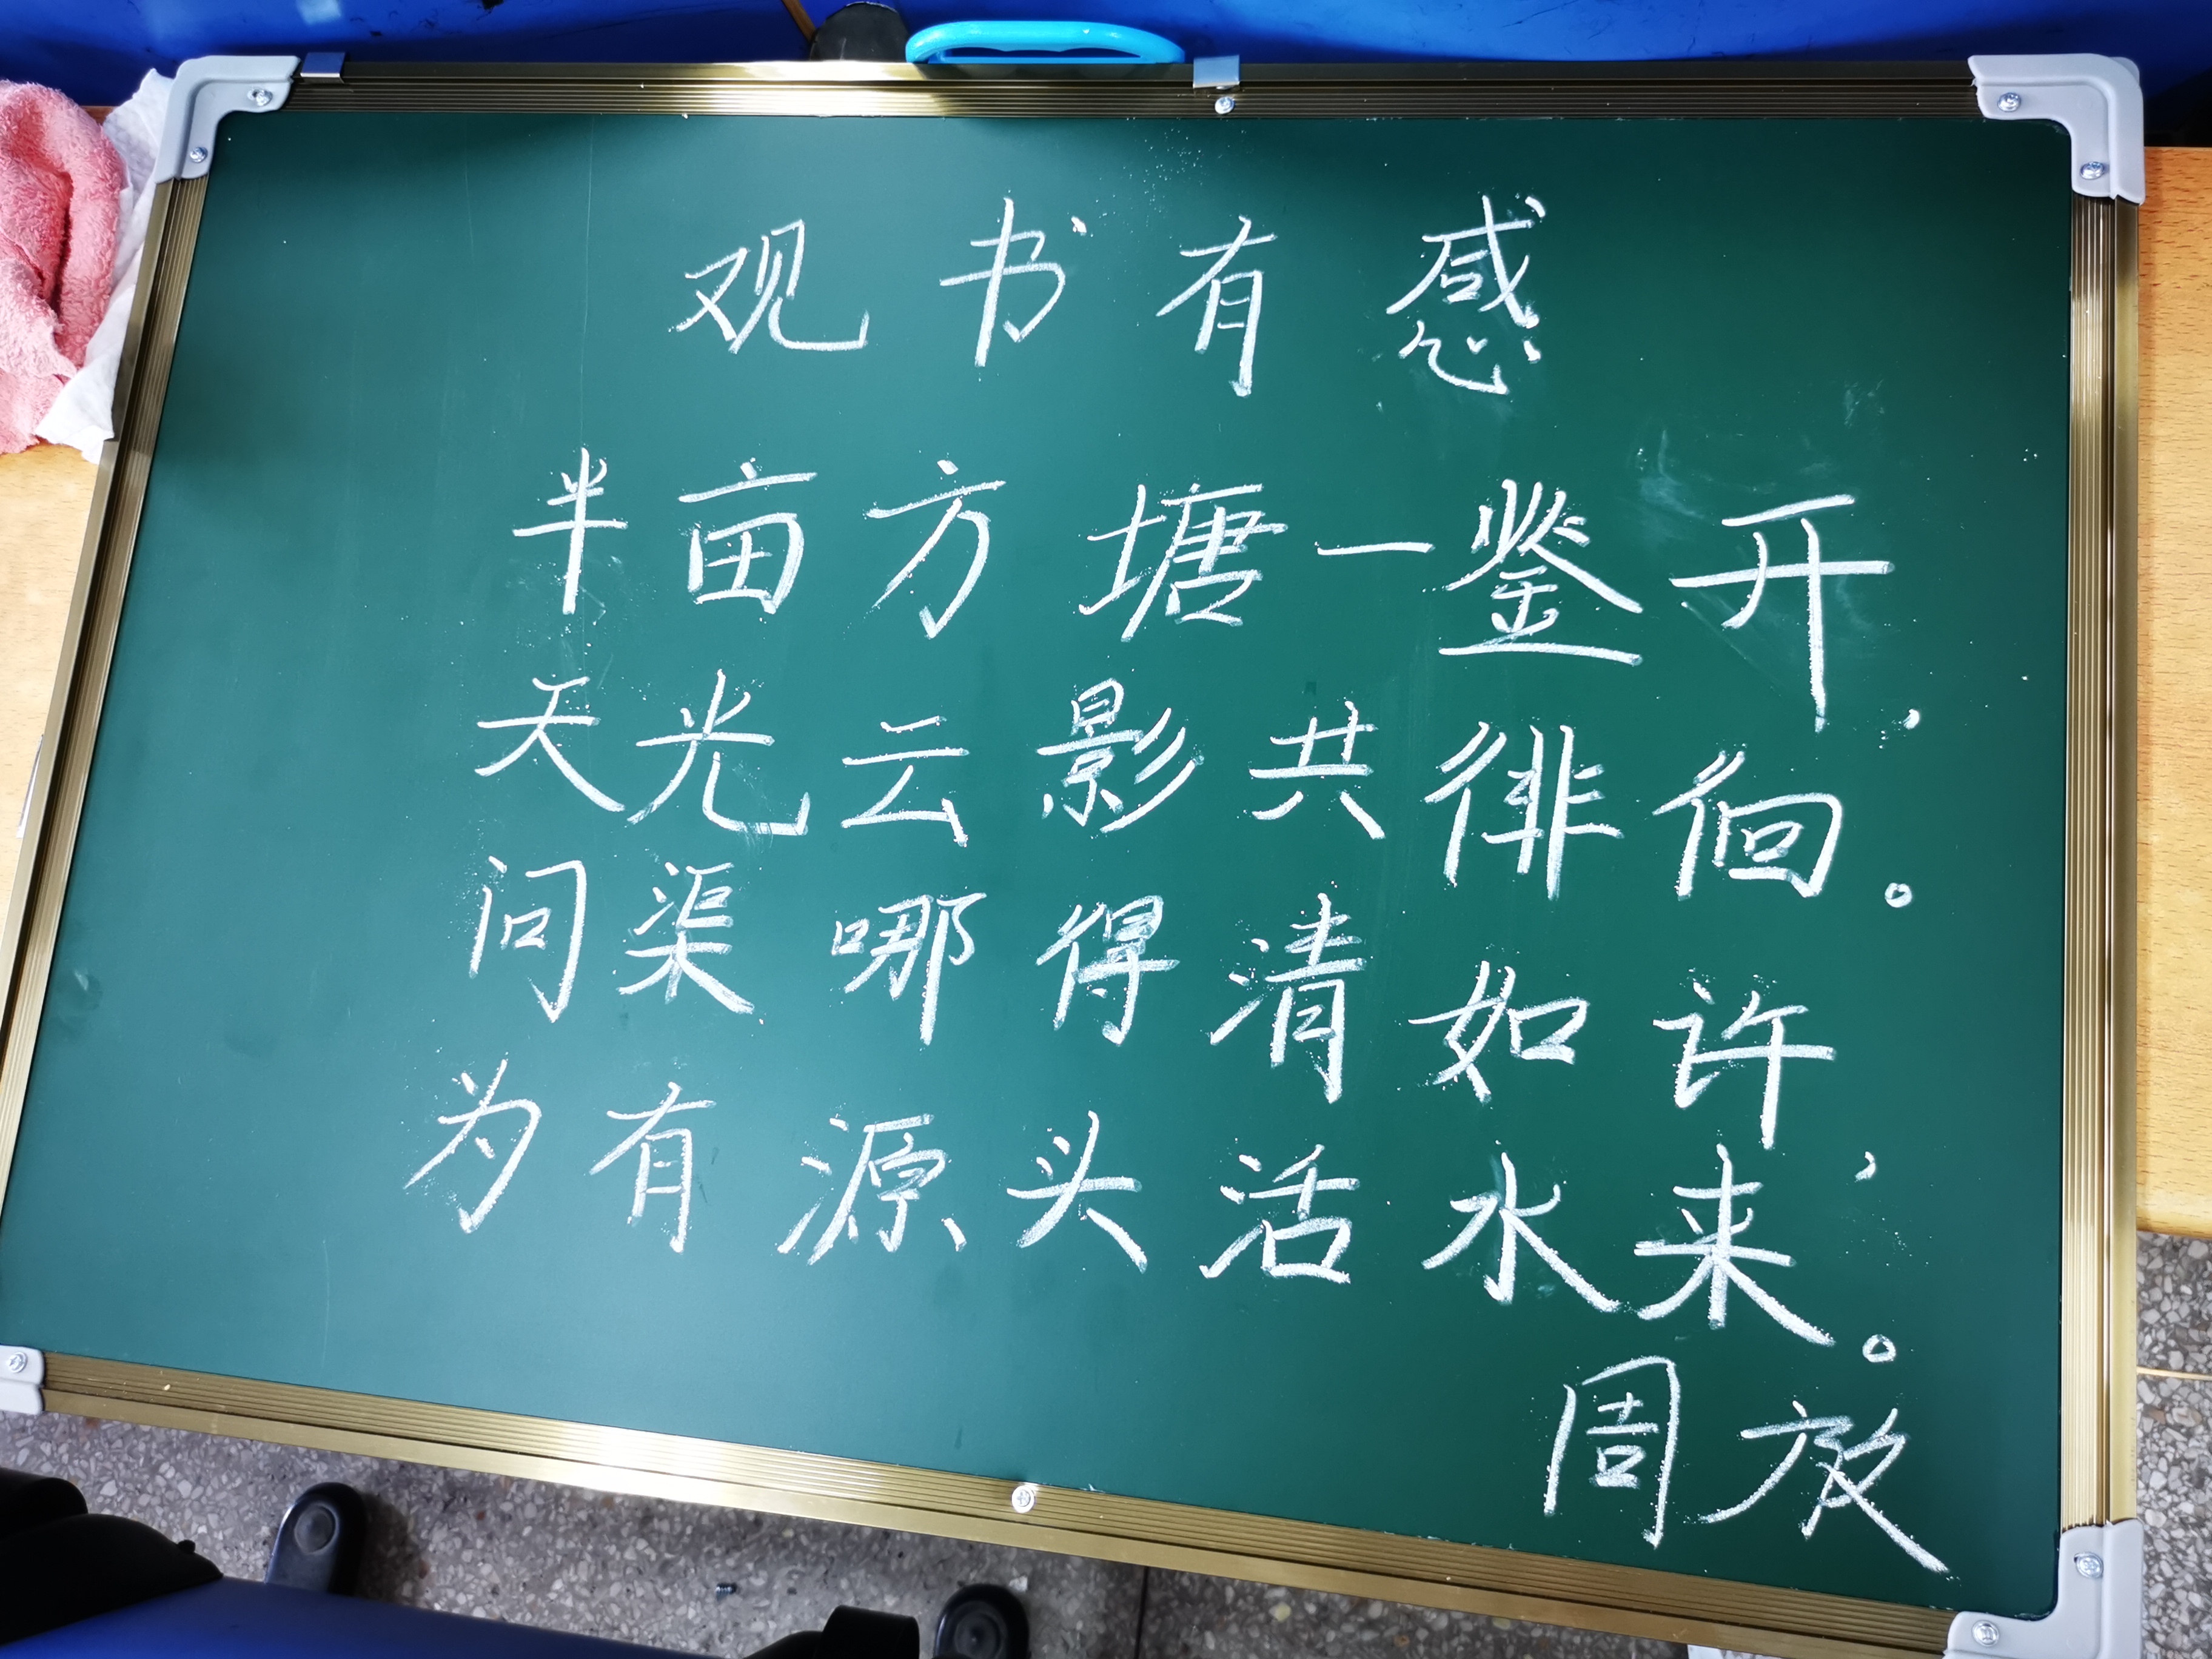 观书有感
半亩方塘一鉴开，
天光云影共徘徊。
问渠哪得清如许，
为有源头活水来。
周放